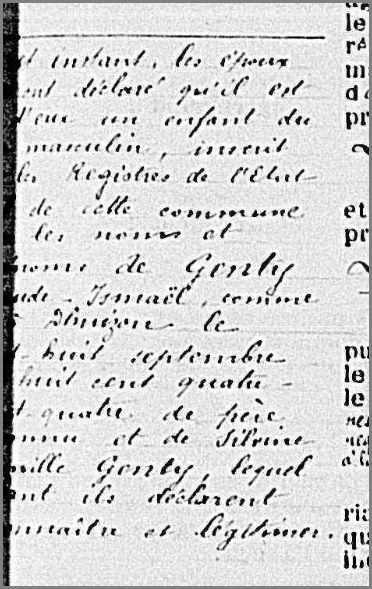 et instant, les époux
ont déclaré qu'il est
d'eux un enfant du
masculin, inscrit
les Registres de l'Etat
de cette commune
les noms et
noms de Gonty
ude Ismaël, comme
le
t-huit septembre
huit cent quatre-
t-quatre de père
onnu et de Silvine
mille Gonty, lequel
ent ils déclarent
onnaître et légitimer.
le
m
pr
et
pr
pu
le
le
ria
qu